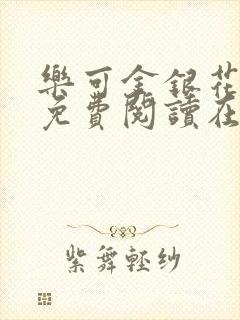 樂可金銀花
免費閱讀在
紫舞輕紗